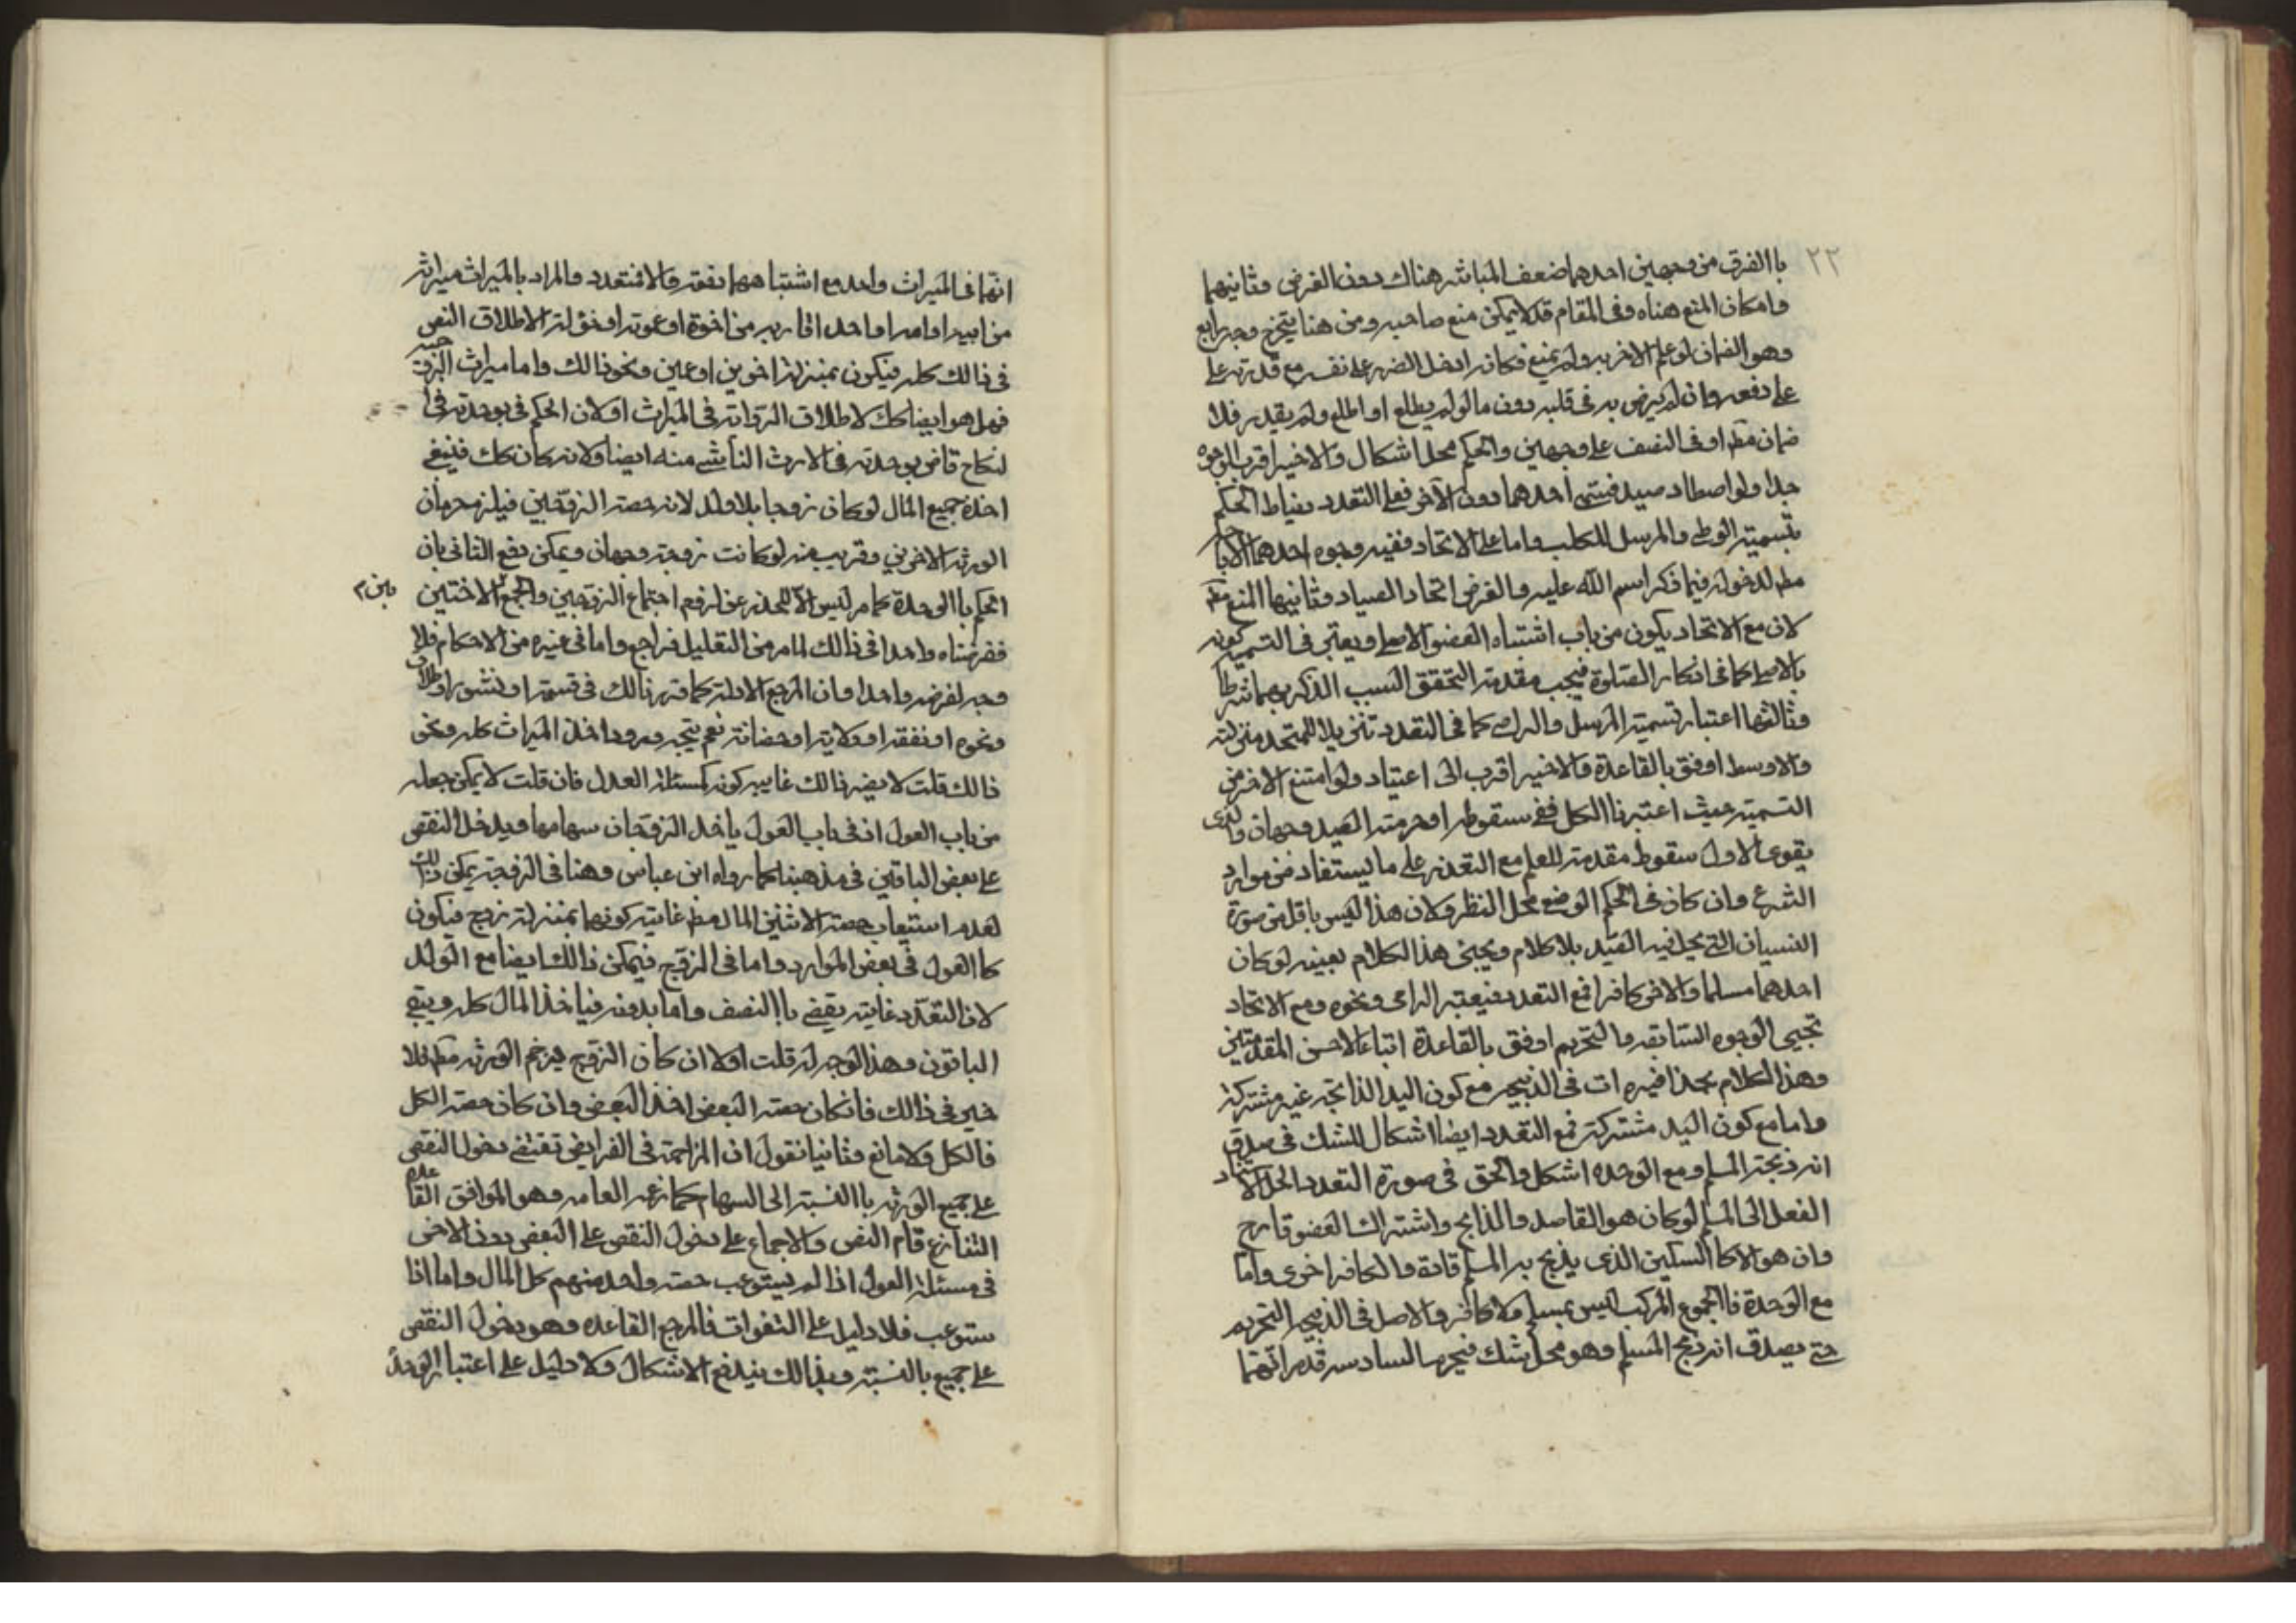 ٢٢
باالفرق من وجهين احدهما ضعف المباشر هناك دون الفرض وثانيهما
وامكان المنع هناه وفى المقام قد لايمكن منع صاحبه ومن هنا يتخرج وجه رابع
وهو الضمان لو علم الاخر به ولم يمنع فكانه ادخل الضرر على نفسه مع قدرته على
على دفعه وان لم يرض به فى قلبه دون ما لو لم يطلع او اطلع ولم يقدر فلا
ضمان مط او فى النصف على وجهين والحكم محل اشكال والاخير اقرب الوجوه
جدا ولو اصطاد صيد فسمى احدهما دون الآخر فعلى التعدد يناط الحكم
بتسميته الوطى والمرسل للكلب واما على الاتحاد ففيه وجوه احدهما الاباحه
مط لدخوله فيما ذكر اسم الله عليه والفرض اتحاد الصياد وثانيها المنع مط
لان مع الاتحاد يكون من باب اشتباه العضو الاصلى ويعتبر فى التسميه كونه
بالاصلى كما فى اذكار الصلوة فيجب مقدمة التحقق السبب الذكر بهما شرطا
وثالثها اعتبار تسمية المرسل والرامى كما فى التعدد تنزيلا للمتحد منزلته
والاوسط اوفق بالقاعدة والاخير اقرب الى اعتياد ولو امتنع الاخر من
التسمية حيث اعتبرنا الكل ففى سقوطه او حرمة الصيد وجهان والذى
يقوى الاول سقوط مقدمة للعلم مع التعذر على ما يستفاد من موارد
الشرع وان كان فى الحكم الوضعى محل النظر ولان هذا ليس باقل من صورة
النسيان التى يحل فيه الصيد بلا كلام ويجئ هذا الكلام بعينه لو كان
احدهما مسلما والاخر كافرا فمع التعدد فيعتبر الرامى ونحوه ومع الاتحاد
تجيى الوجوه السابقه والتحريم اوفق بالقاعدة اتباعا لاخس المقدمتين
وهذا الكلام بحذافيره ات فى الذبيحه مع كون اليد الذابحه غير مشتركة
واما مع كون اليد مشتركة فمع التعدد ايضا اشكال للشك فى صدق
انه ذبيحة المسلم ومع الوحده اشكل والحق فى صورة التعدد الحل لاستناد
الفعل الى المسلم لو كان هو القاصد والذابح واشتراك العضو قارح
وان هو الا كاالسكين الذى يذبح به المسلم تارة والكافر اخرى واما
مع الوحدة فاالمجموع المركب ليس بمسلم ولا كافر والاصل فى الذبيحه التحريم
حتى يصدق انه ذبح المسلم وهو محل شك فيحرم السادسه قد مر انهما
انهما فى الميراث واحد مع اشتباههما دفعة والا فتعدد والمراد بالميراث ميراثه
من ابيه او امه او احد اقاربه من اخوة او عمومة او خؤلة لاطلاق النص
فى ذالك كله فيكون بمنزلة اخوين او عمين ونحو ذالك واما ميراث الزوجيه
فهل هو ايضا كك لاطلاق الرواية فى الميراث او لان الحكم فى بوحدته فى ا
لنكاح قاض بوحدته فى الارث الناشى منه ايضا ولانه كان كك فينبغى
اخذه جميع المال لو كان زوجا بلا ولد لانه حصة الزوجين فيلزم حرمان
الورثه الاخرين وقريب منه لو كانت زوجة وجهان ويمكن دفع الثانى بان
الحكم باالوحدة كما مر ليس الا للحذر عن لزوم اجتماع الزوجين والجمع بين الاختين
بين م
ففرضناه واحدا فى ذالك لما مر من التعليل فراجع واما فى غيره من الاحكام فلا
وجه لفرضه واحدا وان المرجع الادلة كما تر ذالك فى قسمة او نشوز او طلاق
ونحوه او نفقه او ولاية او حضانة نعم يتجه ورود اخذ الميراث كله ونحو
ذالك قلت لا يضر ذالك غايته كونه كمسئلة العدل فان قلت لا يمكن جعله
من باب العول اذ فى باب العول ياخذ الزوجان سهامها ويدخل النقص
على بعض الباقين فى مذهبنا كما رواه ابن عباس وهنا فى الزوجة يمكن ذلك
لعدم استيعاب حصة الاثنين المال مط غايته كونهما بمنزلة زوج فيكون
كاالعول فى بعض الموارد واما فى الزوج فيمكن ذالك ايضا مع الولد
لان التعدد غايته يقضى باالنصف واما بدونه فياخذ المال كله ويبقى
الباقون وهذا لاوجه له قلت اولا ان كان الزوج يزاحم الورثه مط فلا
ضير فى ذالك فانكان حصة البعض اخذ البعض وان كان حصة الكل
فالكل ولا مانع وثانيا نقول ان المزاحمة فى الفرايض تقتضى دخول النقص
على جميع الورثه باالنسبة الى السهام كما زعم العامه وهو الموافق القاعده
التفازع قام النص والاجماع على دخول النقص على البعض دون الاخر
فى مسئلة العول اذا لم يستوعب حصه واحد منهم كل المال واما اذا
ستوعب فلا دليل على التفوات فالمرجع القاعده وهو دخول النقص
على جميع بالنسبة وبذالك يندفع الاشكال ولا دليل على اعتبار الوحدة